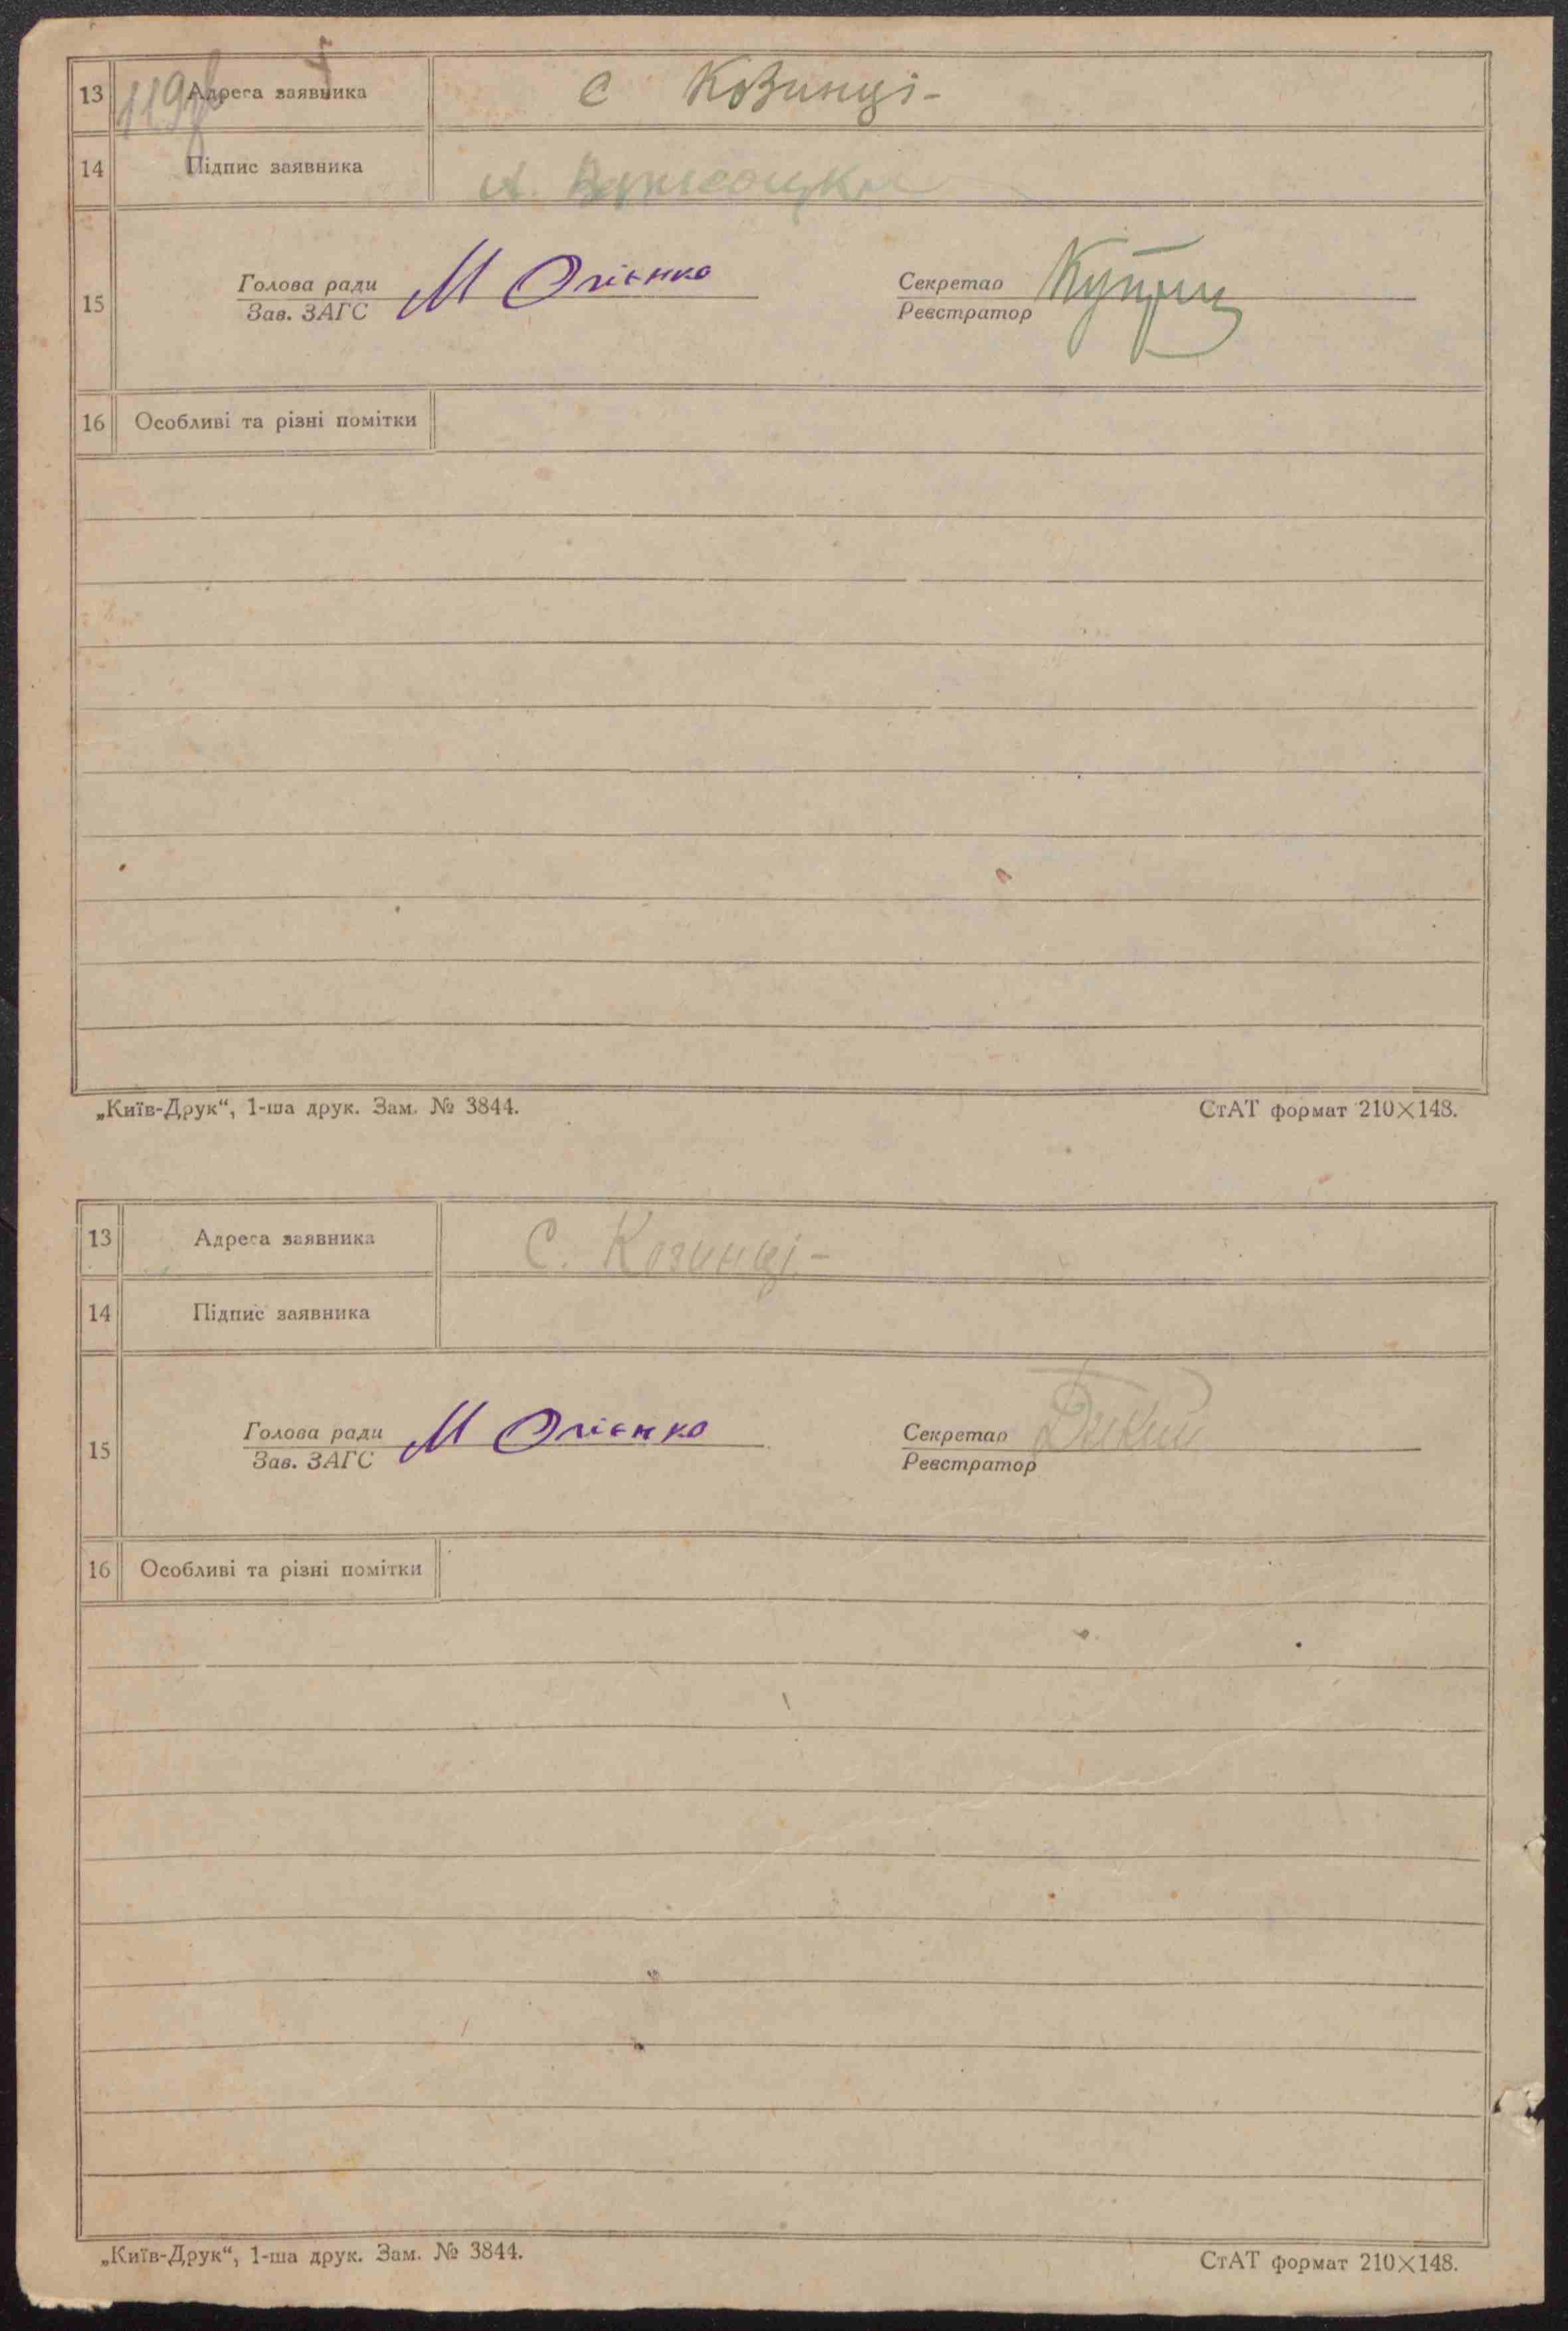 13 Адреса заявника с Козинці-
14 Підпис заявника А.
15 Голова ради М Олієнко Секретар
Зав. ЗАГС Реєстратор
16 Особливі та різні помітки
„Київ-Друк“, 1-ша друк. Зам. № 3844. СтАТ формат 210×148.
13 Адреса заявника С. Козинці-
14 Підпис заявника
15 Голова ради М Олієнко Секретар Дикий
Зав. ЗАГС Реєстратор
16 Особливі та різні помітки
„Київ-Друк“, 1-ша друк. Зам. № 3844. СтАТ формат 210×148.